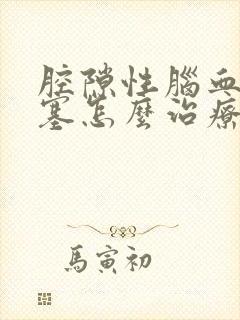 腔隙性腦血
塞怎麼治療
馬寅初